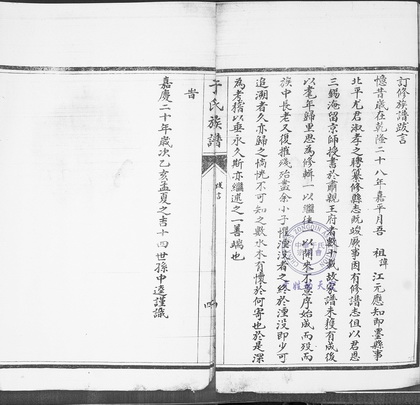 訂修族譜跋言
憶昔歲在乾隆二十八年嘉平月吾 祖諱江元應知即墨縣事
北平尤君淑孝之聘纂修縣志既竣厥事因有修譜志但以君恩
三錫淹留京師授書於肅親王府者數十載故家譜未獲有成後
以耄年歸里思為修輯一以繼往一以開來不意序始成而歿而
族中長老又復摧殘殆盡余小子懼湮沒者之終於湮沒即少可
追溯者久亦歸之惝恍不可知之數水木有懷於何寄也於是深
為考稽以垂永久斯亦繼述之一善端也
于氏族譜
跋言
四
旹
嘉慶二十年歲次乙亥孟夏之吉十四世孫中逵謹識